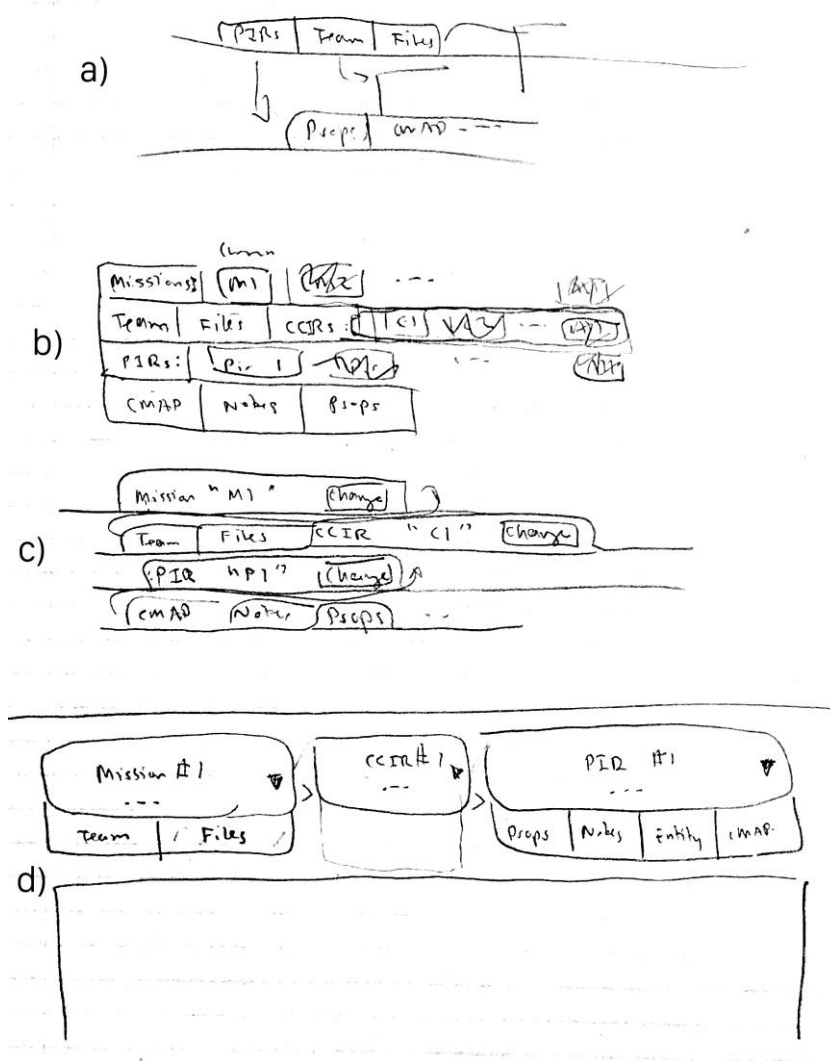 PIRs Team Files
a)
Props CMAP ---
Missions: M1 ---
Team Files CCIRs: C1 ---
b)
PIRs: Pir 1 ---
CMAP Notes Props
Mission "M1" Change
c)
Team Files CCIR "C1" Change
PIR "P1" Change
CMAP Notes Props --
Mission #1 > CCIR #1 > PIR #1
--- --- ---
Team Files Props Notes Entity CMAP
d)